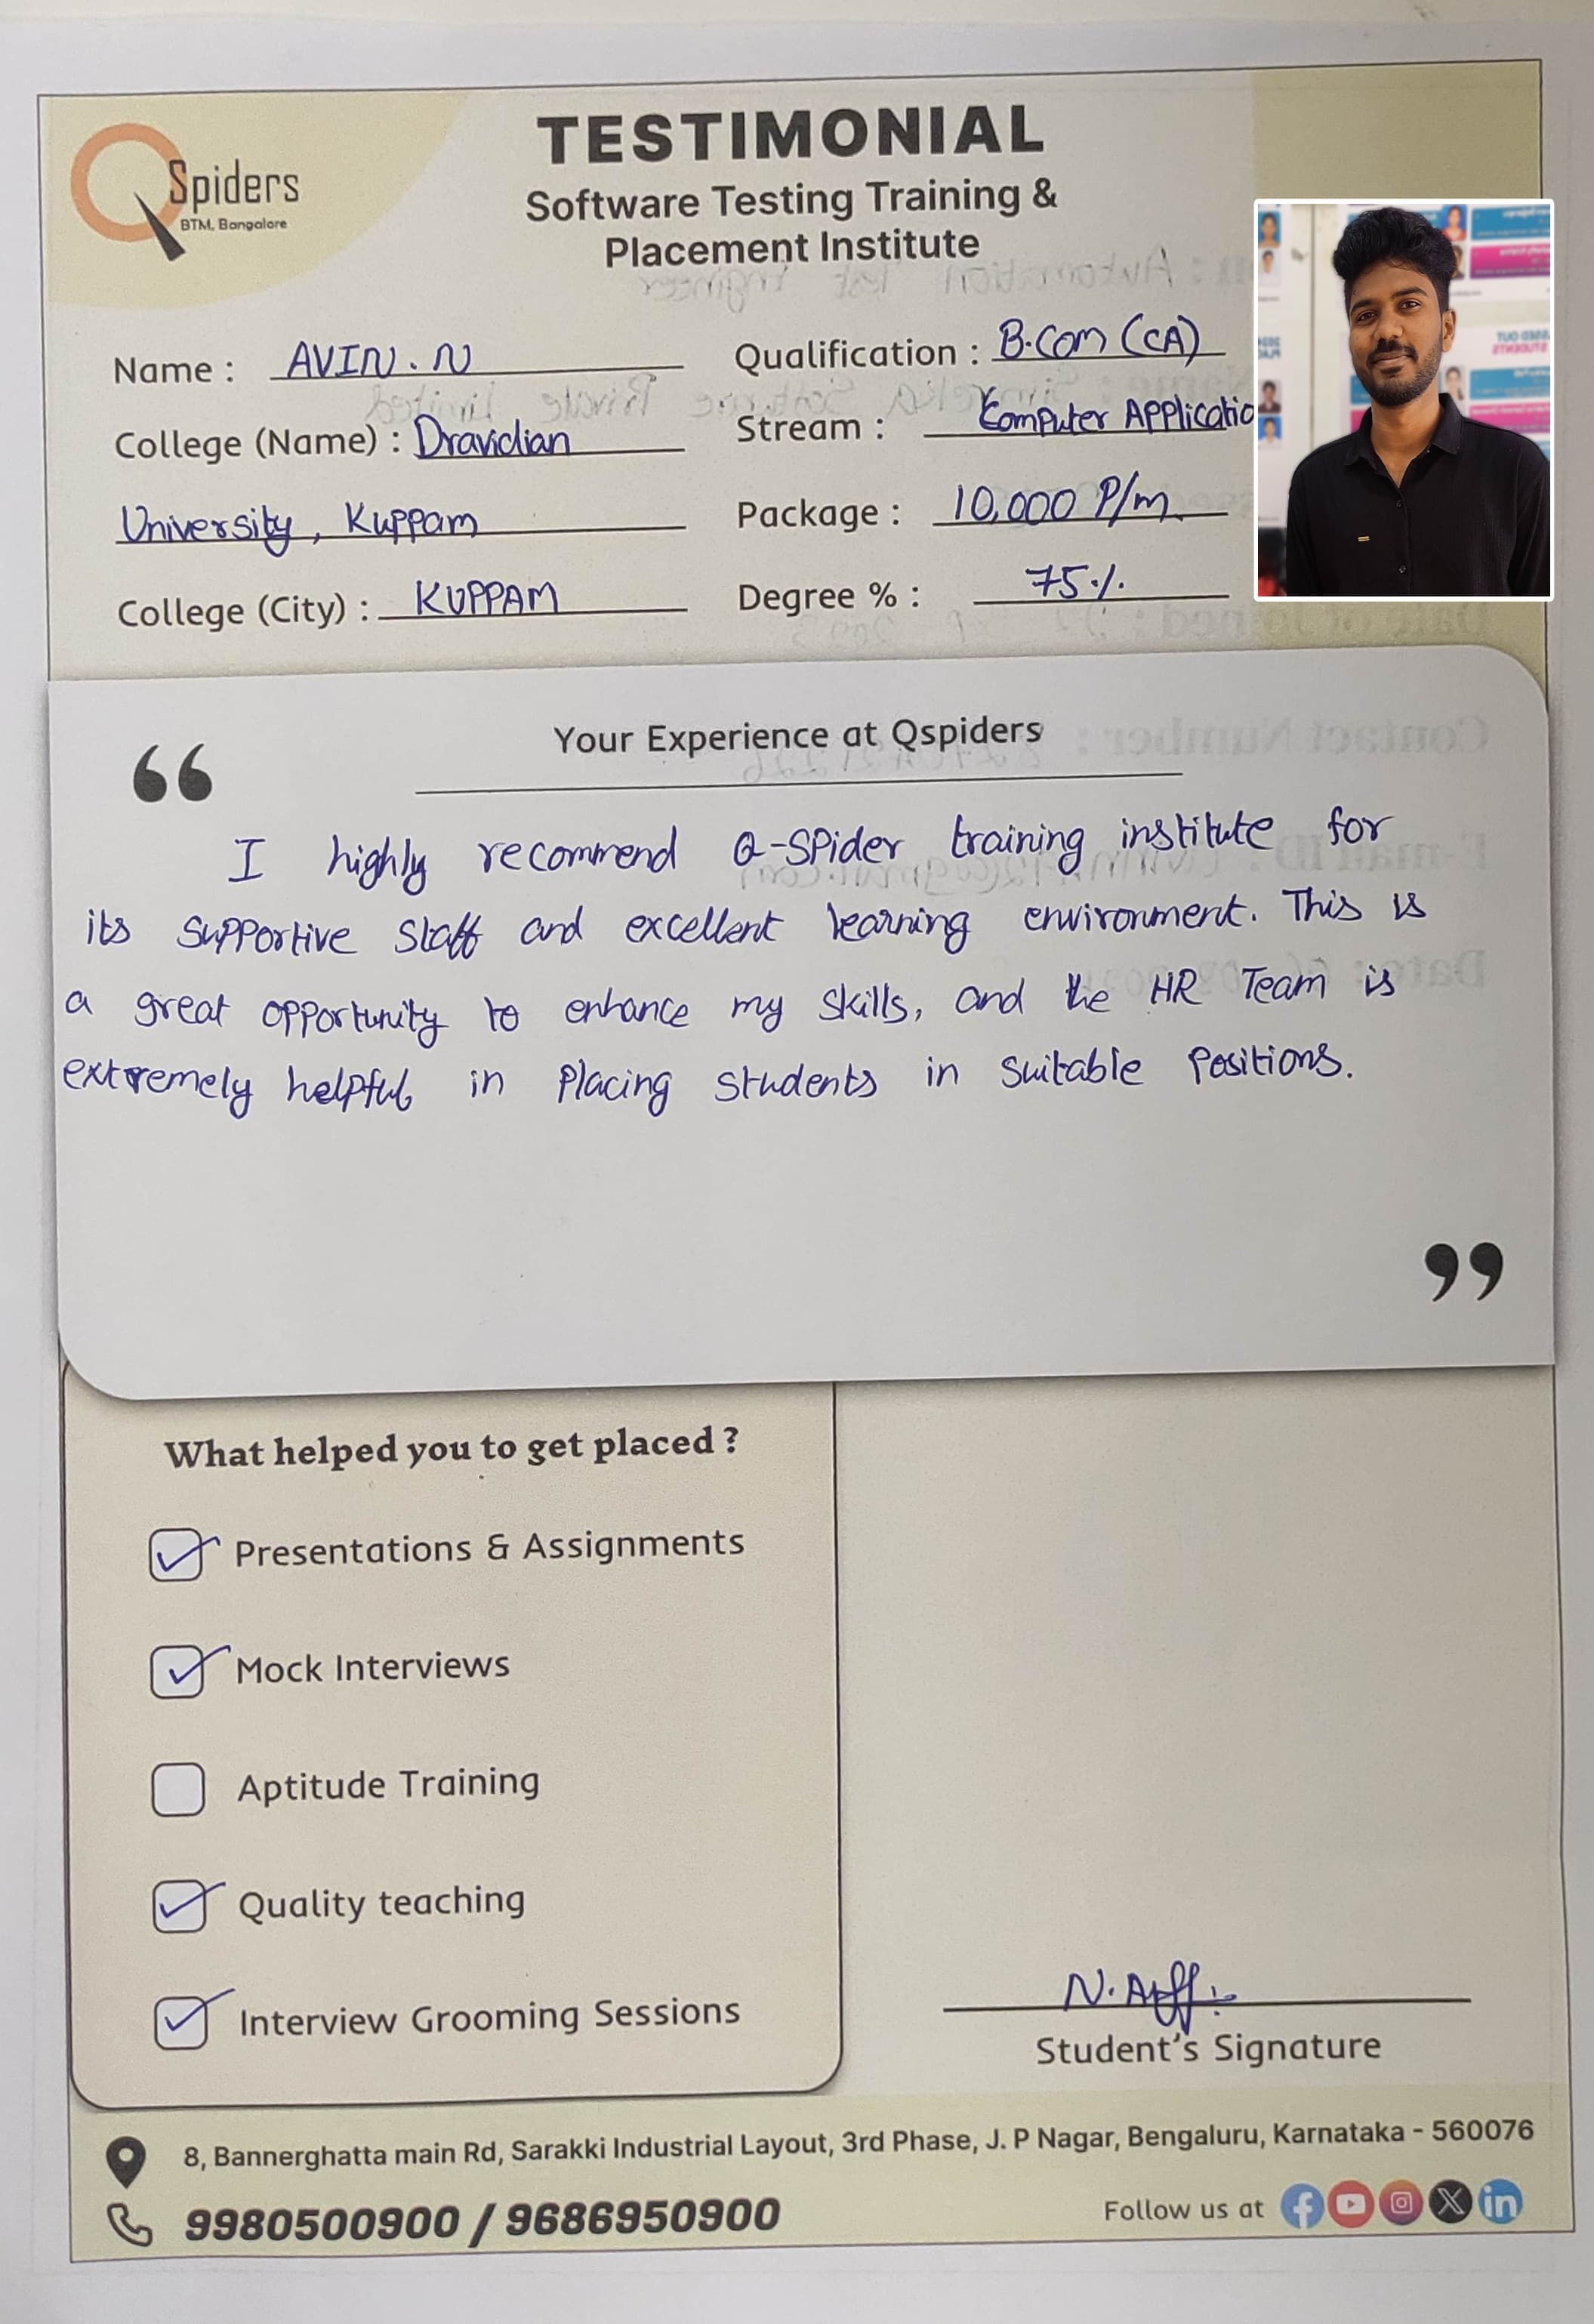 QSpiders
BTM, Bangalore
TESTIMONIAL
Software Testing Training &
Placement Institute
Name : AVIN. N
Qualification : B.Com (CA)
College (Name) : Dravidian
Stream : Computer Applicatio
University, Kuppam
Package : 10,000 P/m
College (City) : KUPPAM
Degree % : 75%
Your Experience at Qspiders
I highly recommend Q-SPider training institute for
its supportive staff and excellent learning environment. This is
a great opportunity to enhance my skills, and the HR Team is
extremely helpful in Placing students in suitable Positions.
What helped you to get placed ?
Presentations & Assignments
Mock Interviews
Aptitude Training
Quality teaching
Interview Grooming Sessions
Student's Signature
8, Bannerghatta main Rd, Sarakki Industrial Layout, 3rd Phase, J. P Nagar, Bengaluru, Karnataka - 560076
9980500900 / 9686950900
Follow us at